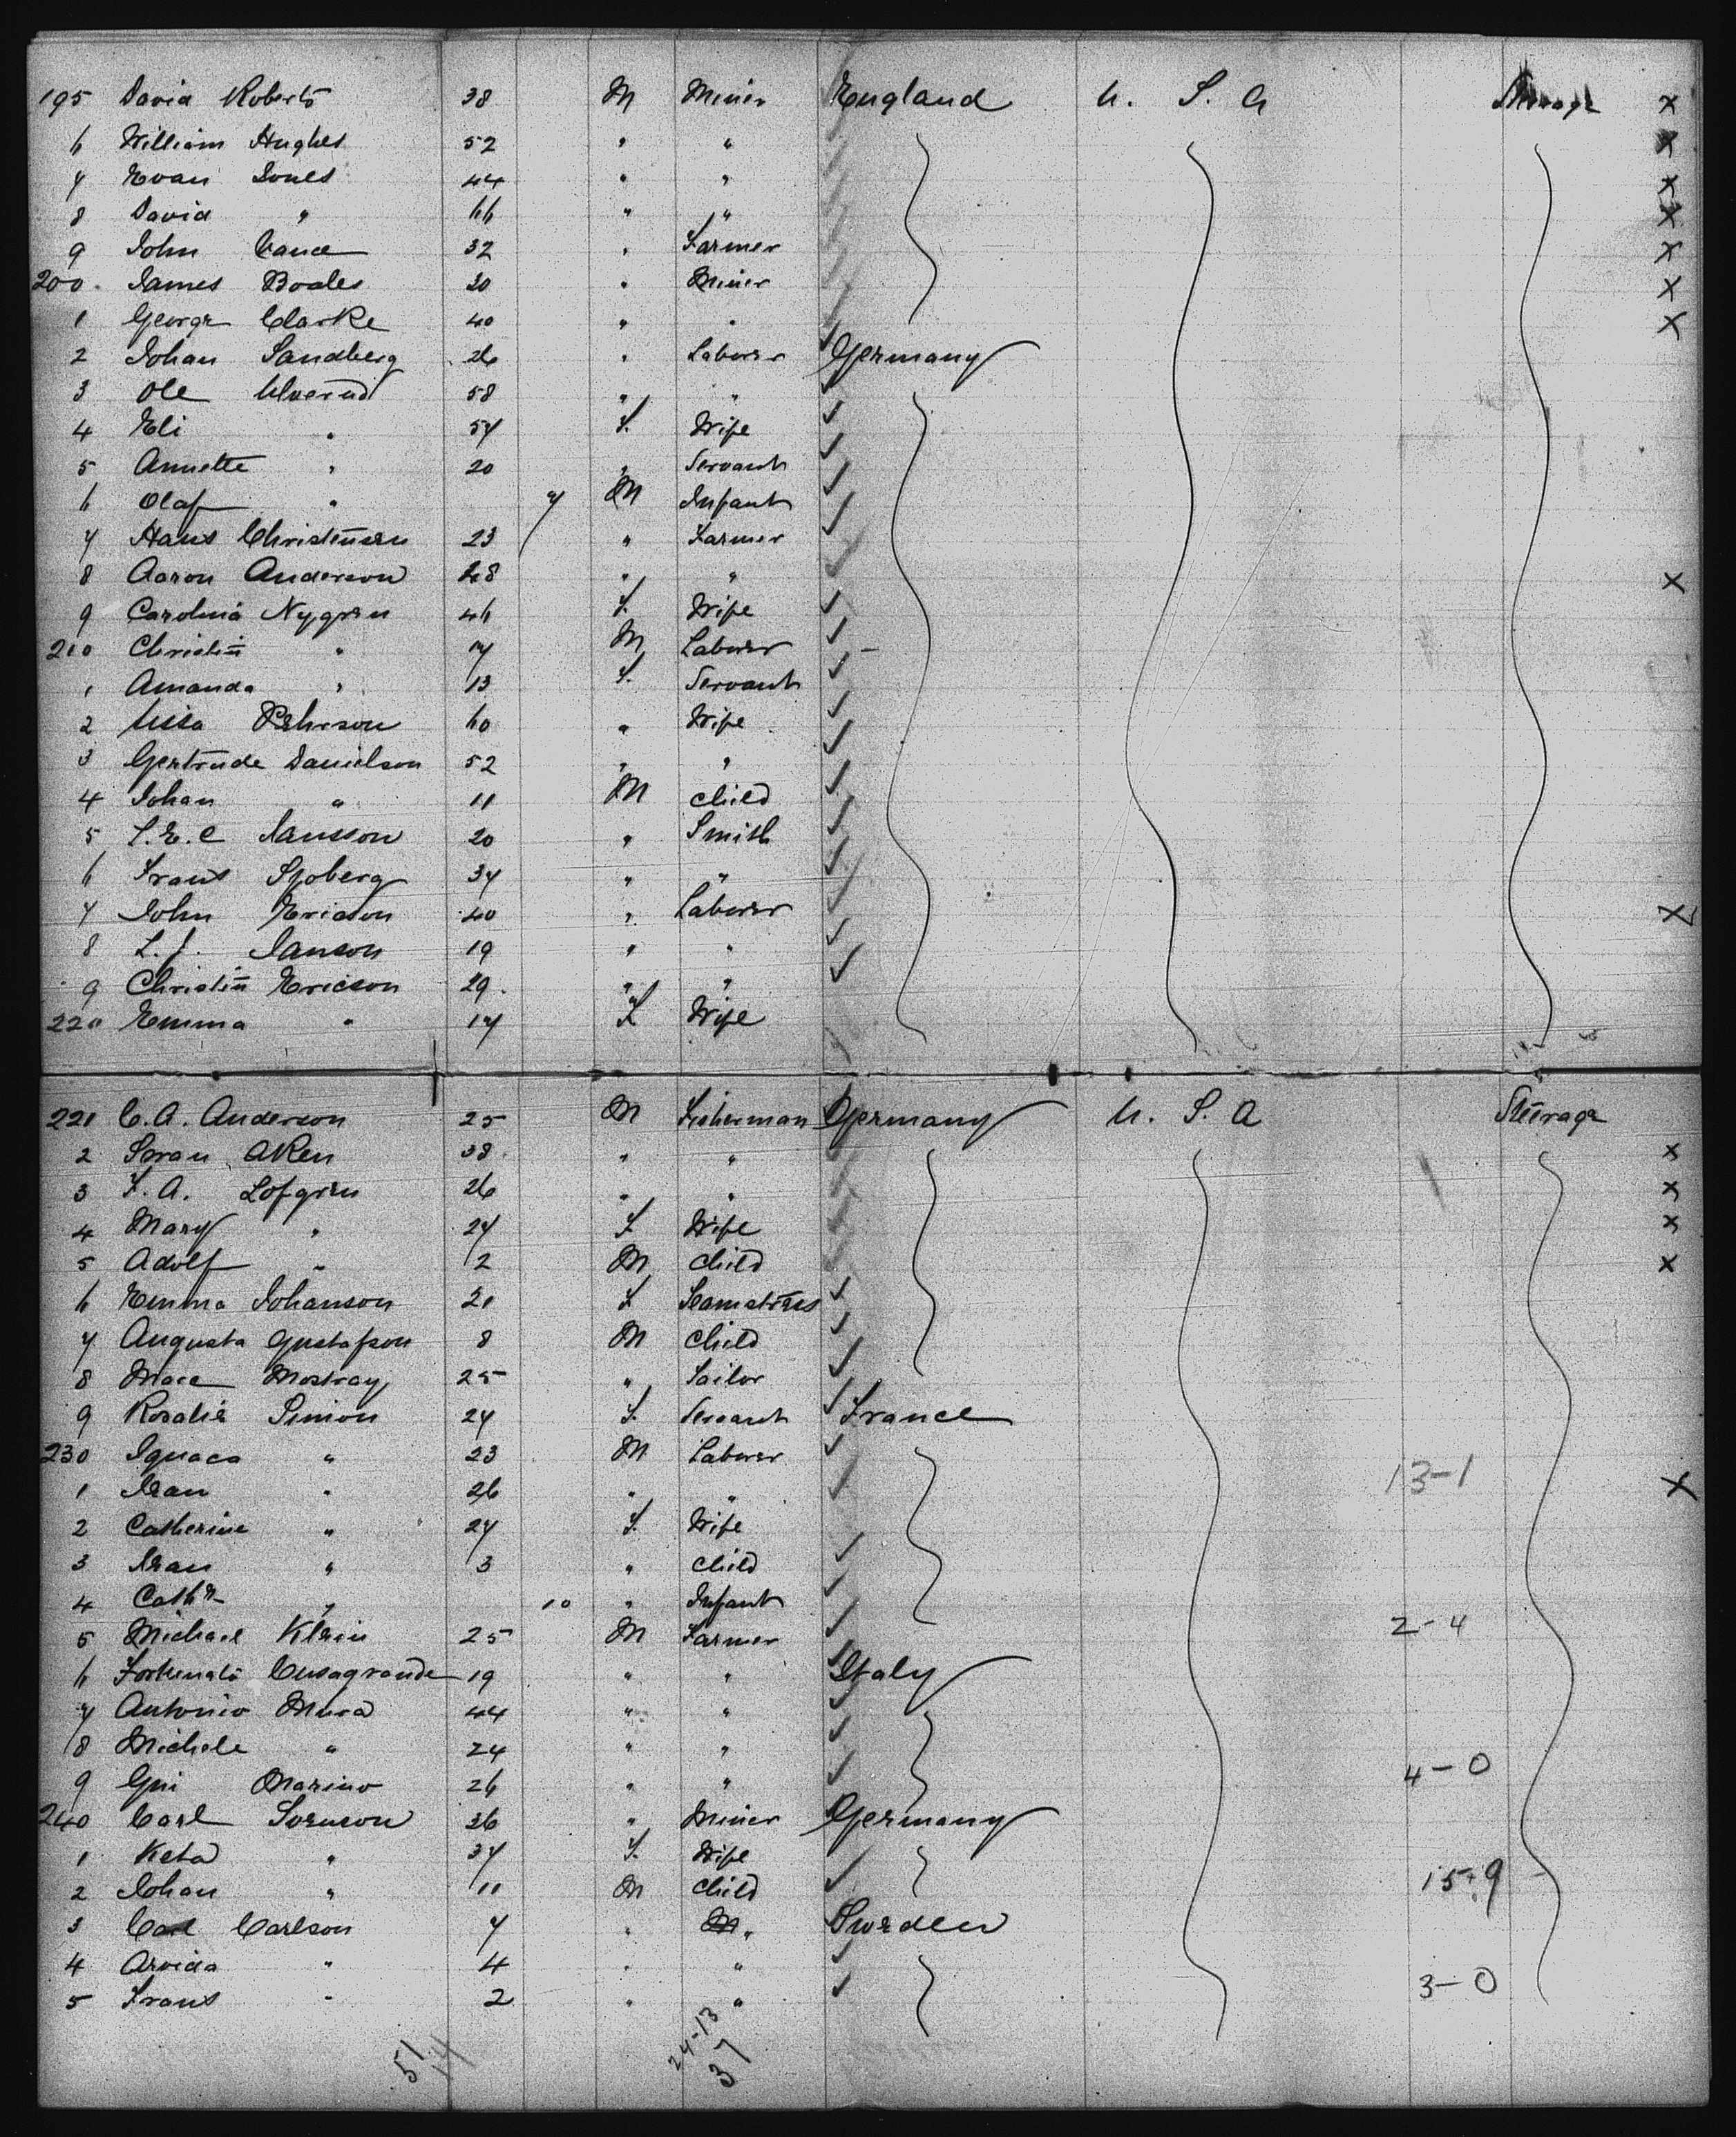 195 David Roberts 38 M Miner England U. S. A Steerage x
6 William Hughes 52 " " x
7 Evan Jones 44 " " x
8 David " 66 " " x
9 John 32 " Farmer x
200 James Boales 30 " Miner x
1 George Clarke 40 " " x
2 Johan Sandberg 26 " Laborer Germany
3 Ole Ulverud 58 " "
4 Eli " 57 F. Wife
5 Annette " 20 " Servant
6 Olaf " 7 M Infant
7 Hans Christensen 23 " Farmer
8 Aaron Anderson 48 " " x
9 Carolina Nygren 46 F. Wife
210 Christin " 17 M Laborer
1 Amanda " 13 F. Servant
2 Pehrson 60 " Wife
3 Gertrude Danielson 52 " "
4 Johan " 11 M Child
5 Jansson 20 " Smith
6 Frans Sjoberg 37 " "
7 John Ericson 40 " Laborer x
8 L. J. Janson 19 " "
9 Christin Ericson 29 " "
220 Emma " 17 F Wife
221 C. A. Anderson 25 M Fisherman Germany U. S. A Steerage
2 Soran Aken 38 " " x
3 F. A. Lofgren 26 " " x
4 Mary " 27 F Wife x
5 Adolf " 2 M Child x
6 Emma Johanson 21 F Seamstress
7 Augusta Gustafson 8 M Child
8 25 " Sailor
9 Rosalie Simon 27 F. Servant France
230 Ignaca " 23 M Laborer 13-1
1 Jean " 26 " " x
2 Catherine " 27 F. Wife
3 Jean " 3 " Child
4 Cathr " 10 " Infant
5 Michael Klein 25 M Farmer 2-4
6 Fortunato Cusagrande 19 " " Italy
7 Antonio Mura 44 " "
8 Michele " 24 " "
9 Gui Marino 26 " " 4-0
240 Carl Sornson 36 " Miner Germany
1 Keta " 37 F. Wife
2 Johan " 11 M Child 15-9
3 Carl Carlson 7 " " Sweden
4 Arvida " 4 " "
5 Frans " 2 " " 3-0
51 14 24-13
37